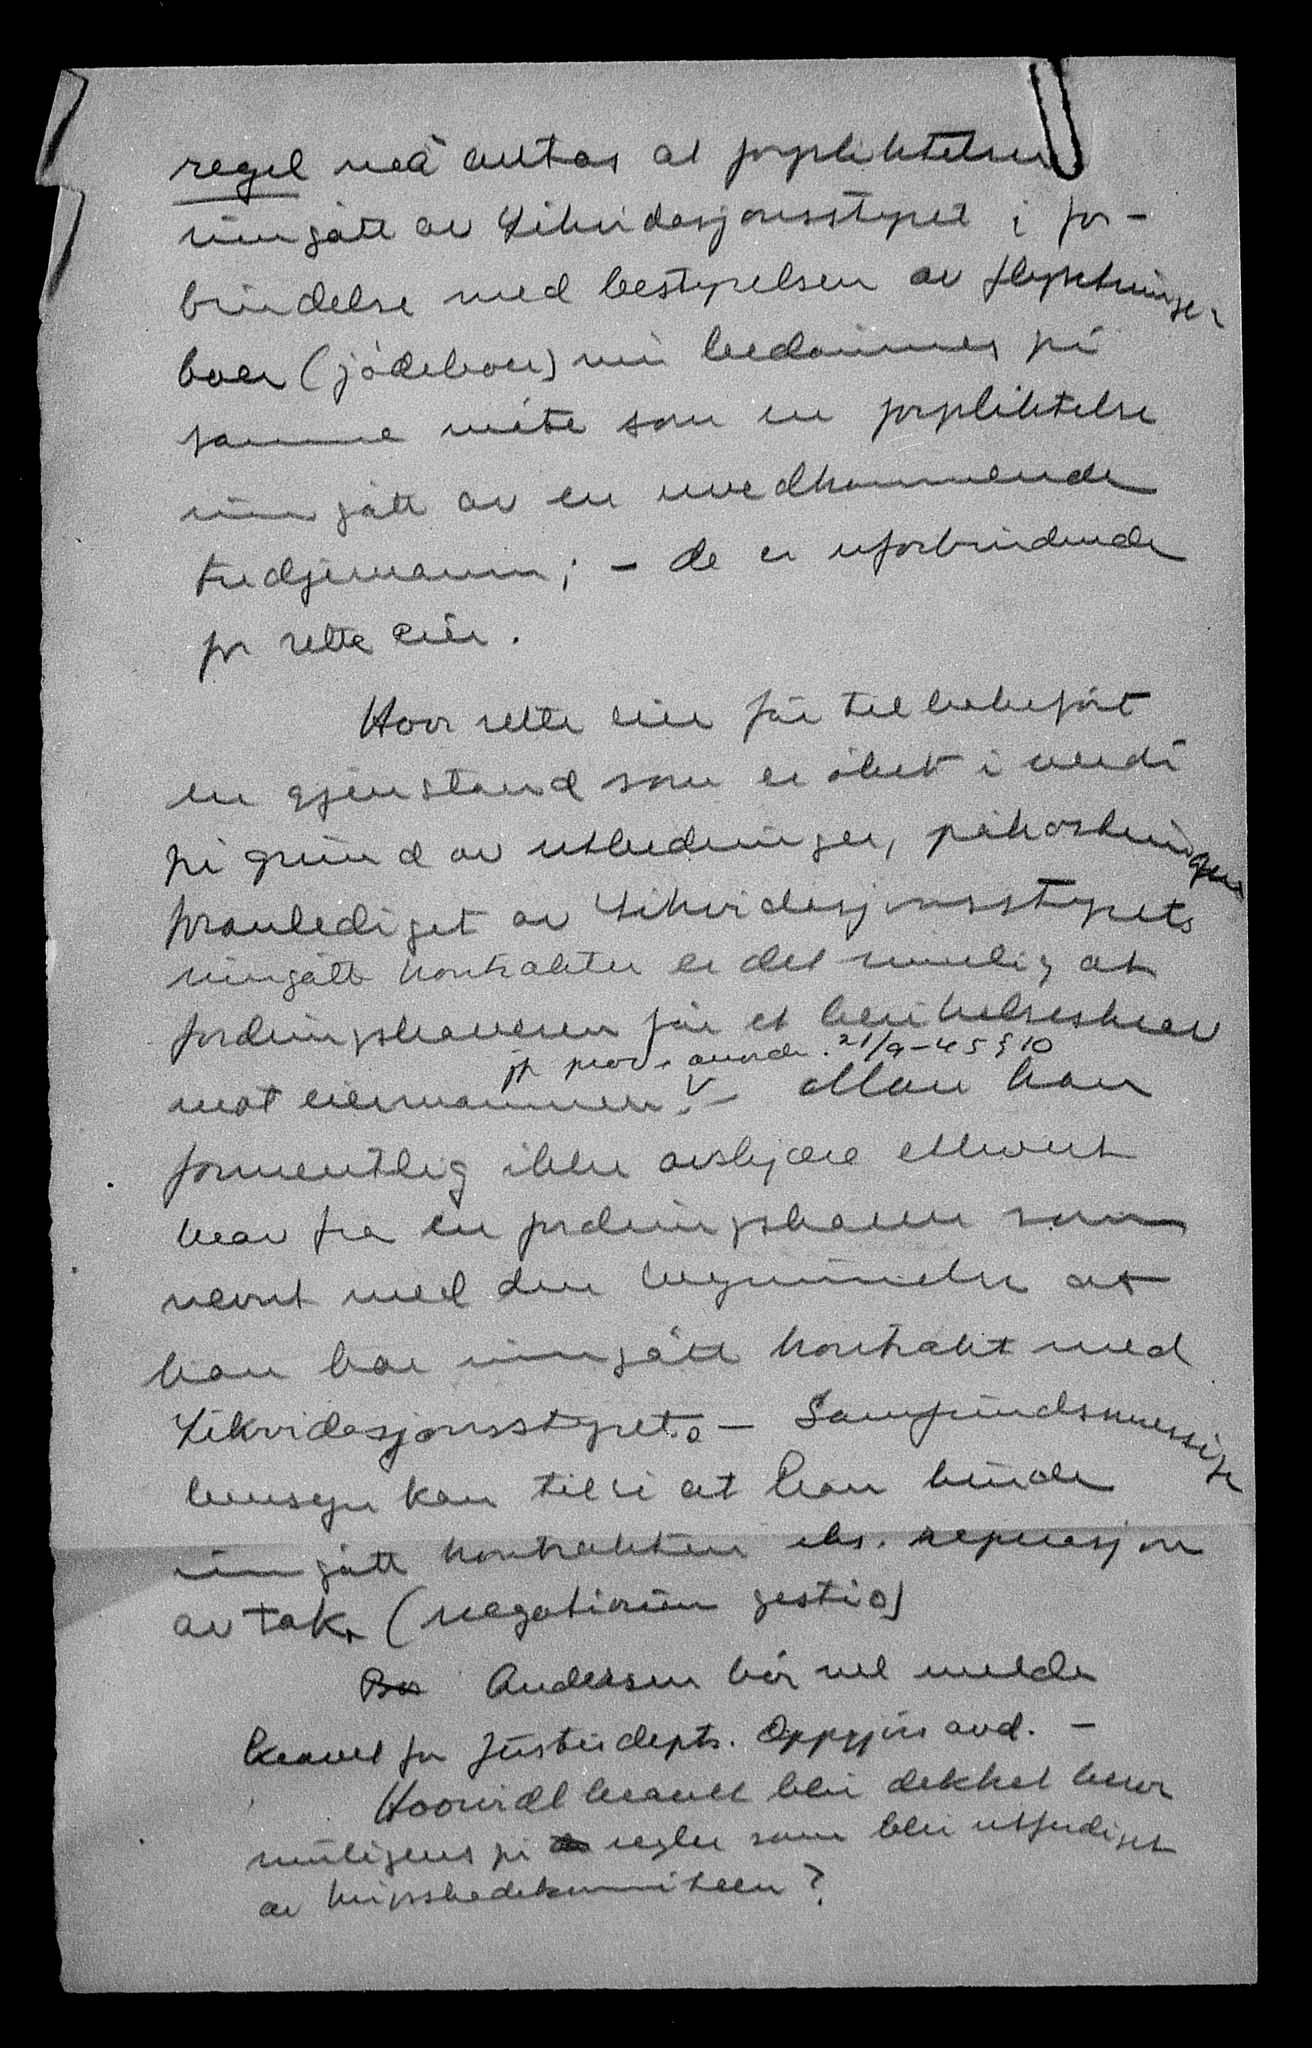 regel må antas at forpliktelser
inngått av Likvidasjonsstyret i for-
bindelse med bestyrelsen av flyktninge-
boer (jødeboer) må bedømmes på
samme måte som en forpliktelse
inngått av en uvedkommende
tredjemann; - de er uforbindende
for rette eier.
Hvor rette eier får tilbakeført
en gjenstand som er øket i verdi
på grunn av utbedringer, påkostninger
foranlediget av Likvidasjonsstyrets
inngåtte kontrakter er det rimelig at
fordringshaveren får et berikelseskrav
jfr prov. anordn. 21/9-45 § 10
mot eiermannen. V - Man kan
formentlig ikke avskjære ethvert
krav fra en fordringshaver som
nevnt med den begrunnelse at
han har inngått kontrakt med
Likvidasjonsstyret. - Samfundsmessige
hensyn kan tilsi at han burde
inngått kontrakten eks. reperasjon
av tak. (negotiorum gestio)
Andersen bør vel melde
kravet for Justisdepts. Oppgjørsavd. -
Hvorvidt kravet blir dekket beror
muligens på regler som blir utferdiget
av krigsskadekomiteen?